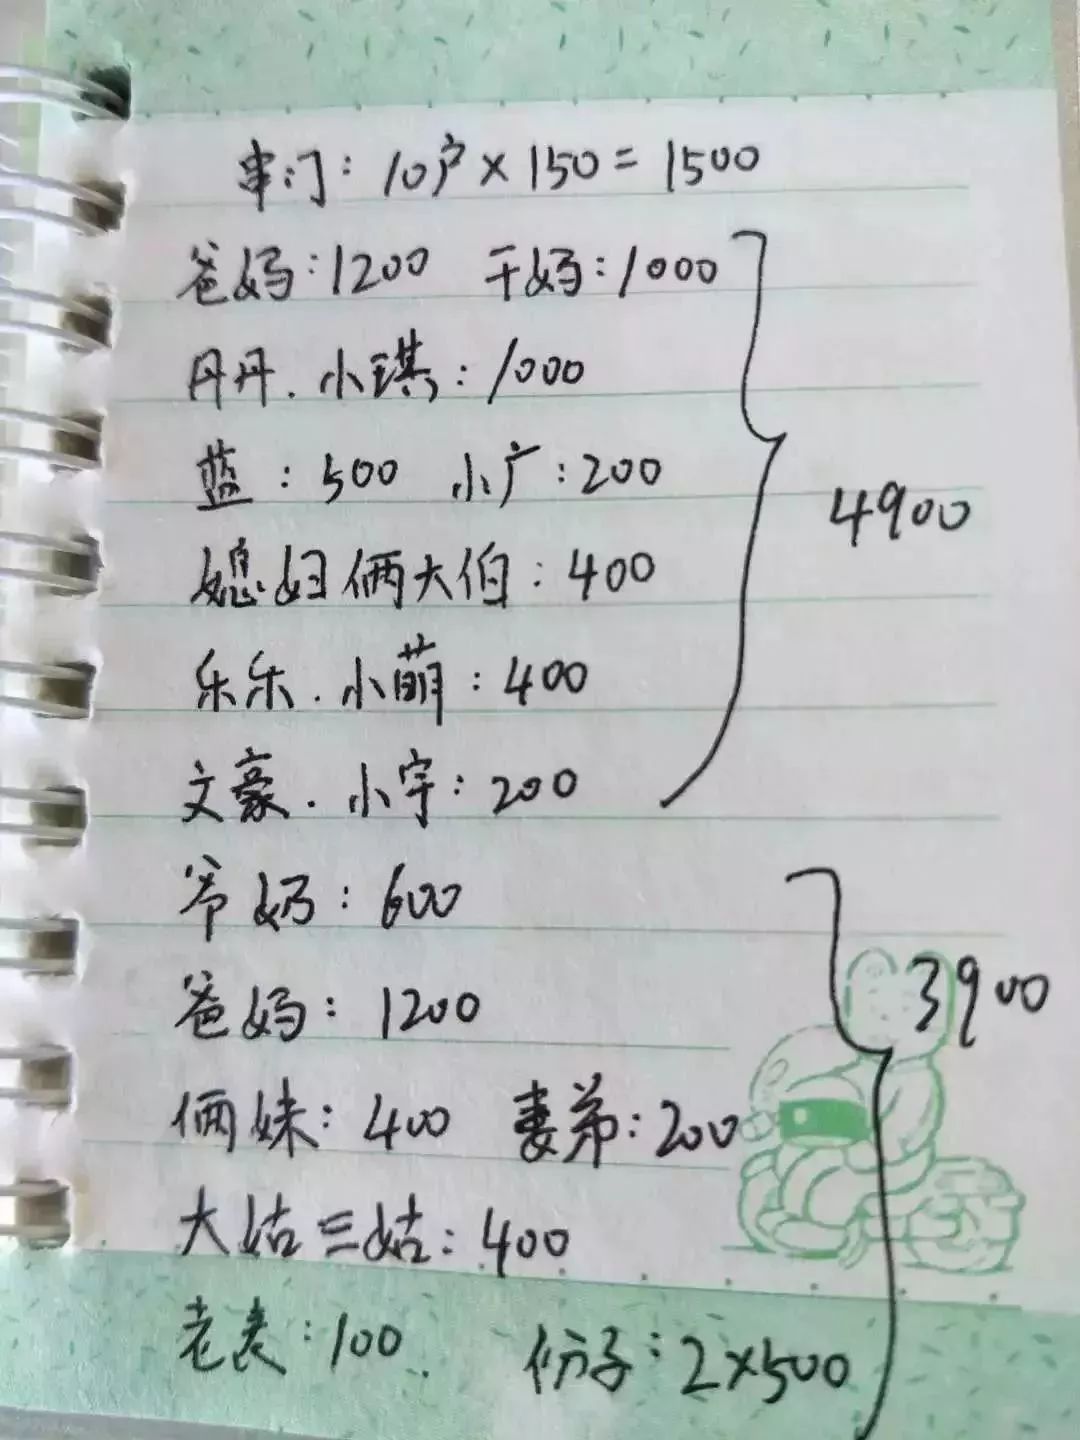 串门：10户×150=1500
爸妈：1200 干妈：1000
丹丹.小琪：1000
蓝：500 小广：200
4900
媳妇俩大伯：400
乐乐.小萌：400
文豪.小宇：200
爷奶：600
爸妈：1200
3900
俩妹：400 妻弟：200
大姑三姑：400
老表：100 份子：2×500